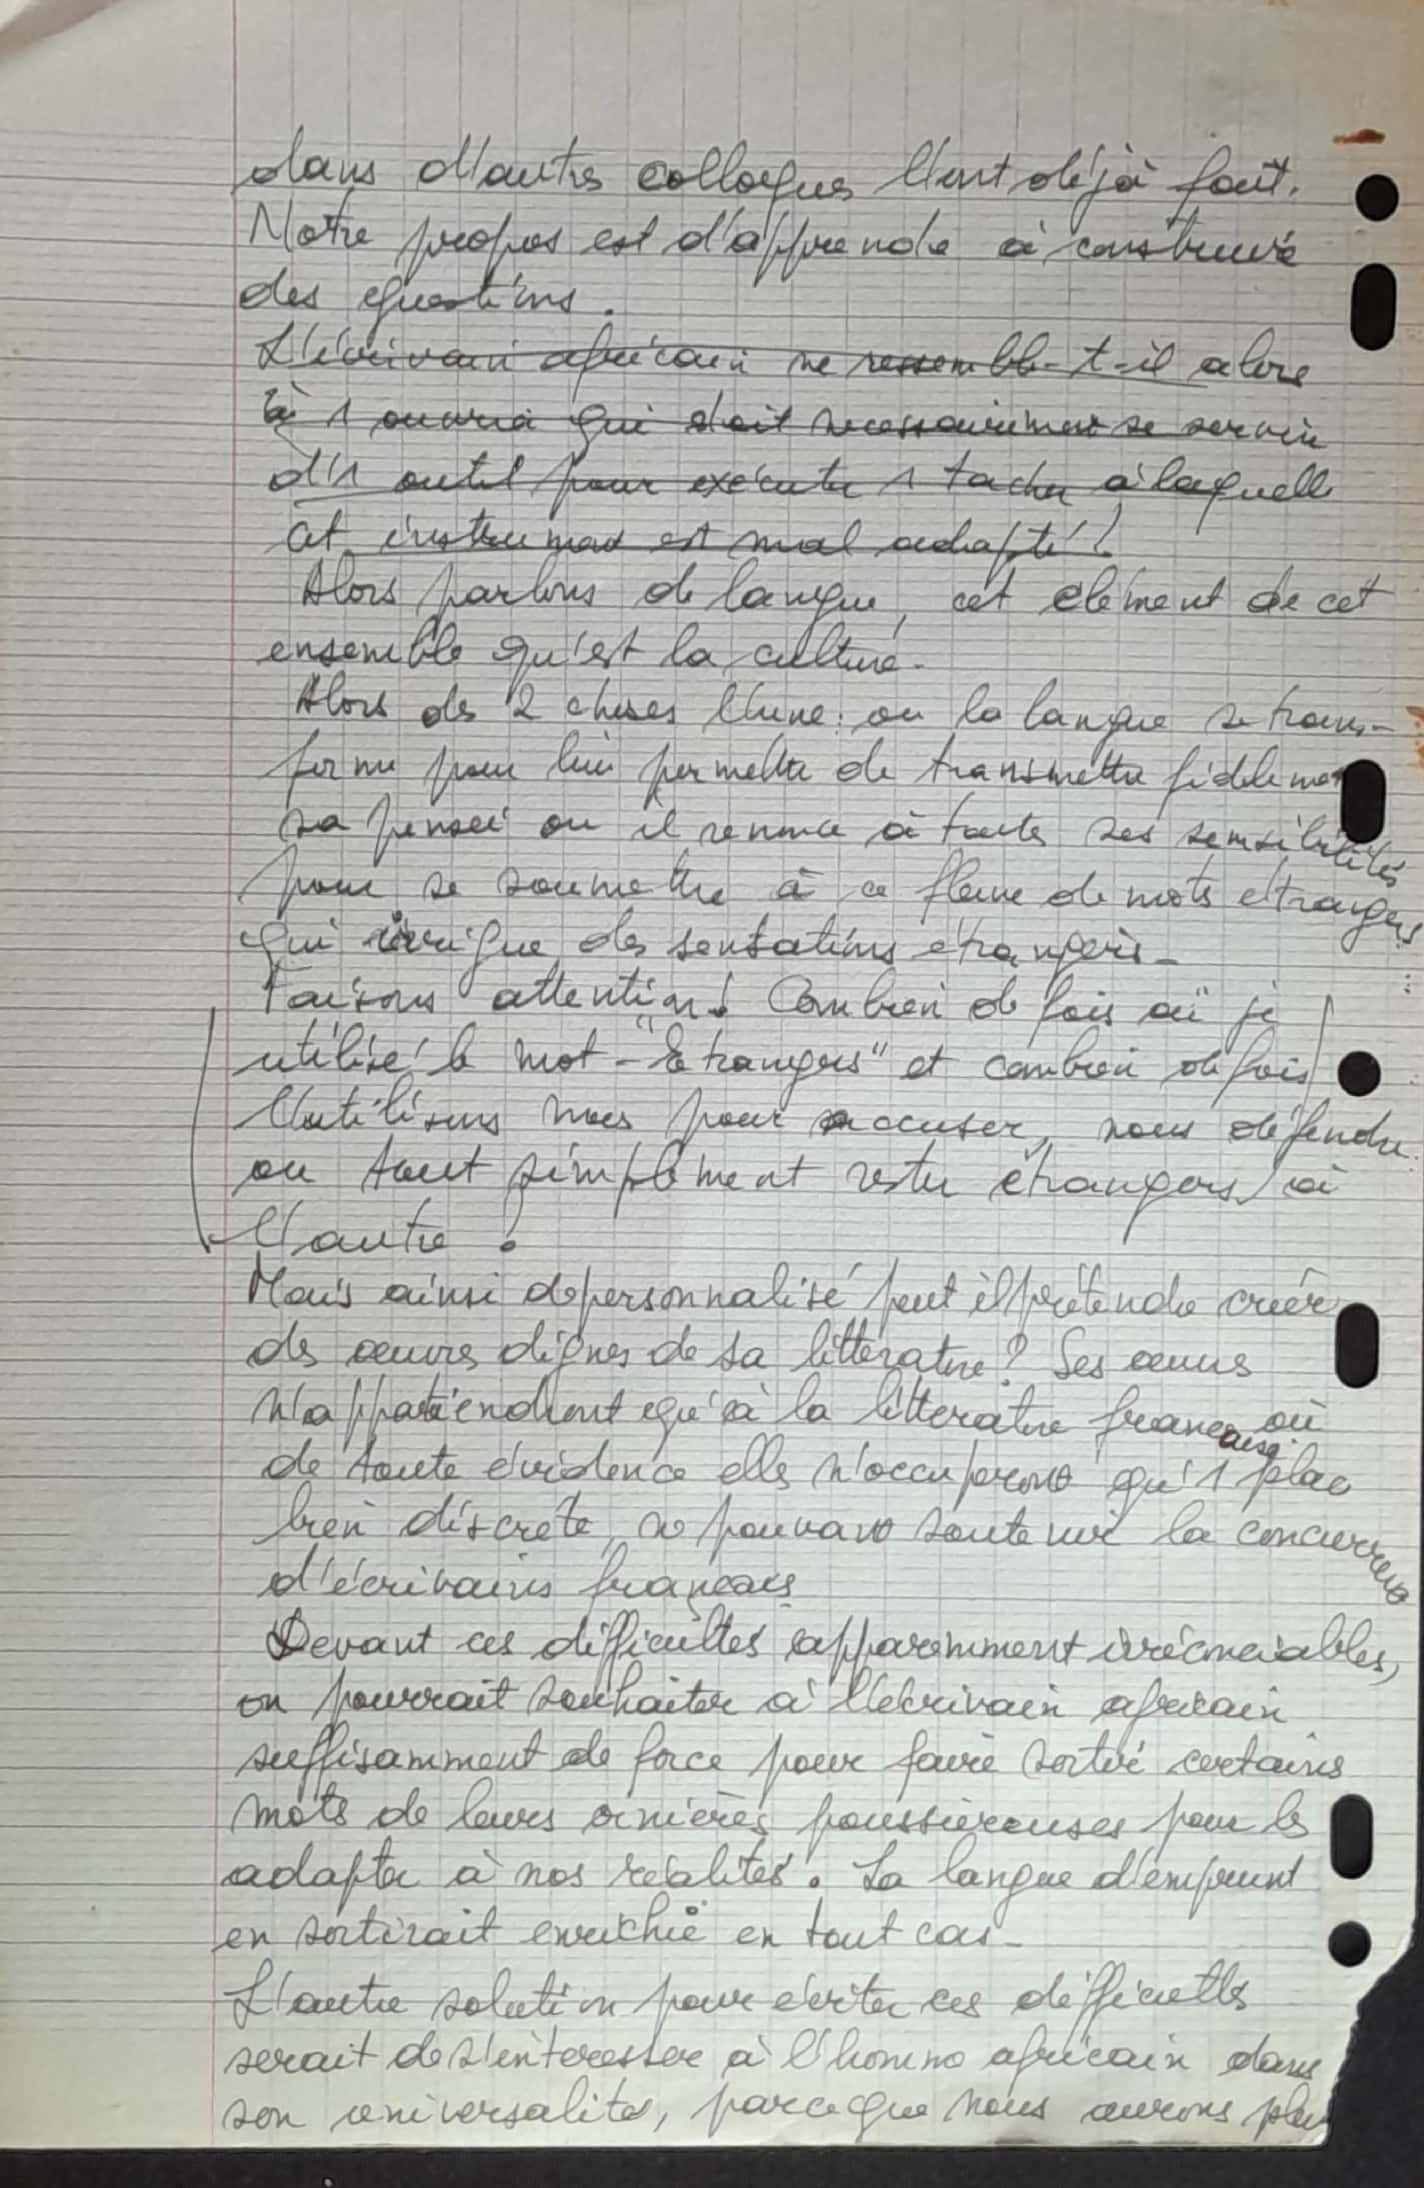 dans d'autres colloques l'ont déjà fait.
Notre propos est d'apprendre à construire
des questions.
L'écrivain africain ne ressemble-t-il alors
à 1 ouvrier qui doit necessairement se servir
d'1 outil pour exécuter 1 tache à laquelle
cet instrument est mal adapté ?
Alors parlons de langue, cet élément de cet
ensemble qu'est la culture.
Alors des 2 choses l'une : ou la langue se trans-
forme pour lui permettre de transmettre fidelement
sa pensée ou il renonce à toutes ses sensibilités
pour se soumettre à ce fleuve de mots étrangers
qui irrigue des sensations étrangères.
Faisons attention ! Combien de fois ai je
utilisé le mot - "Etrangers" et combien de fois
l'utilisons nous pour accuser, nous défendre
ou tout simplement rester étrangers à
l'autre ?
Mais ainsi depersonnalisé peut il prétendre créer
des œuvres dignes de sa litterature ? Ses œuvres
n'appartiendront qu'à la litterature française où
de toute évidence elles n'occuperont qu'1 place
bien discrète, ne pouvant soutenir la concurrence
d'écrivains français
Devant ces difficultés apparemment irréconciables,
on pourrait souhaiter à l'écrivain africain
suffisamment de force pour faire sortir certains
mots de leurs ornières poussiereuses pour les
adapter à nos réalités. La langue d'emprunt
en sortirait enrichie en tout cas -
L'autre solution pour éviter ces difficultés
serait de s'interesser à l'homme africain dans
son universalité, parceque nous aurons plus